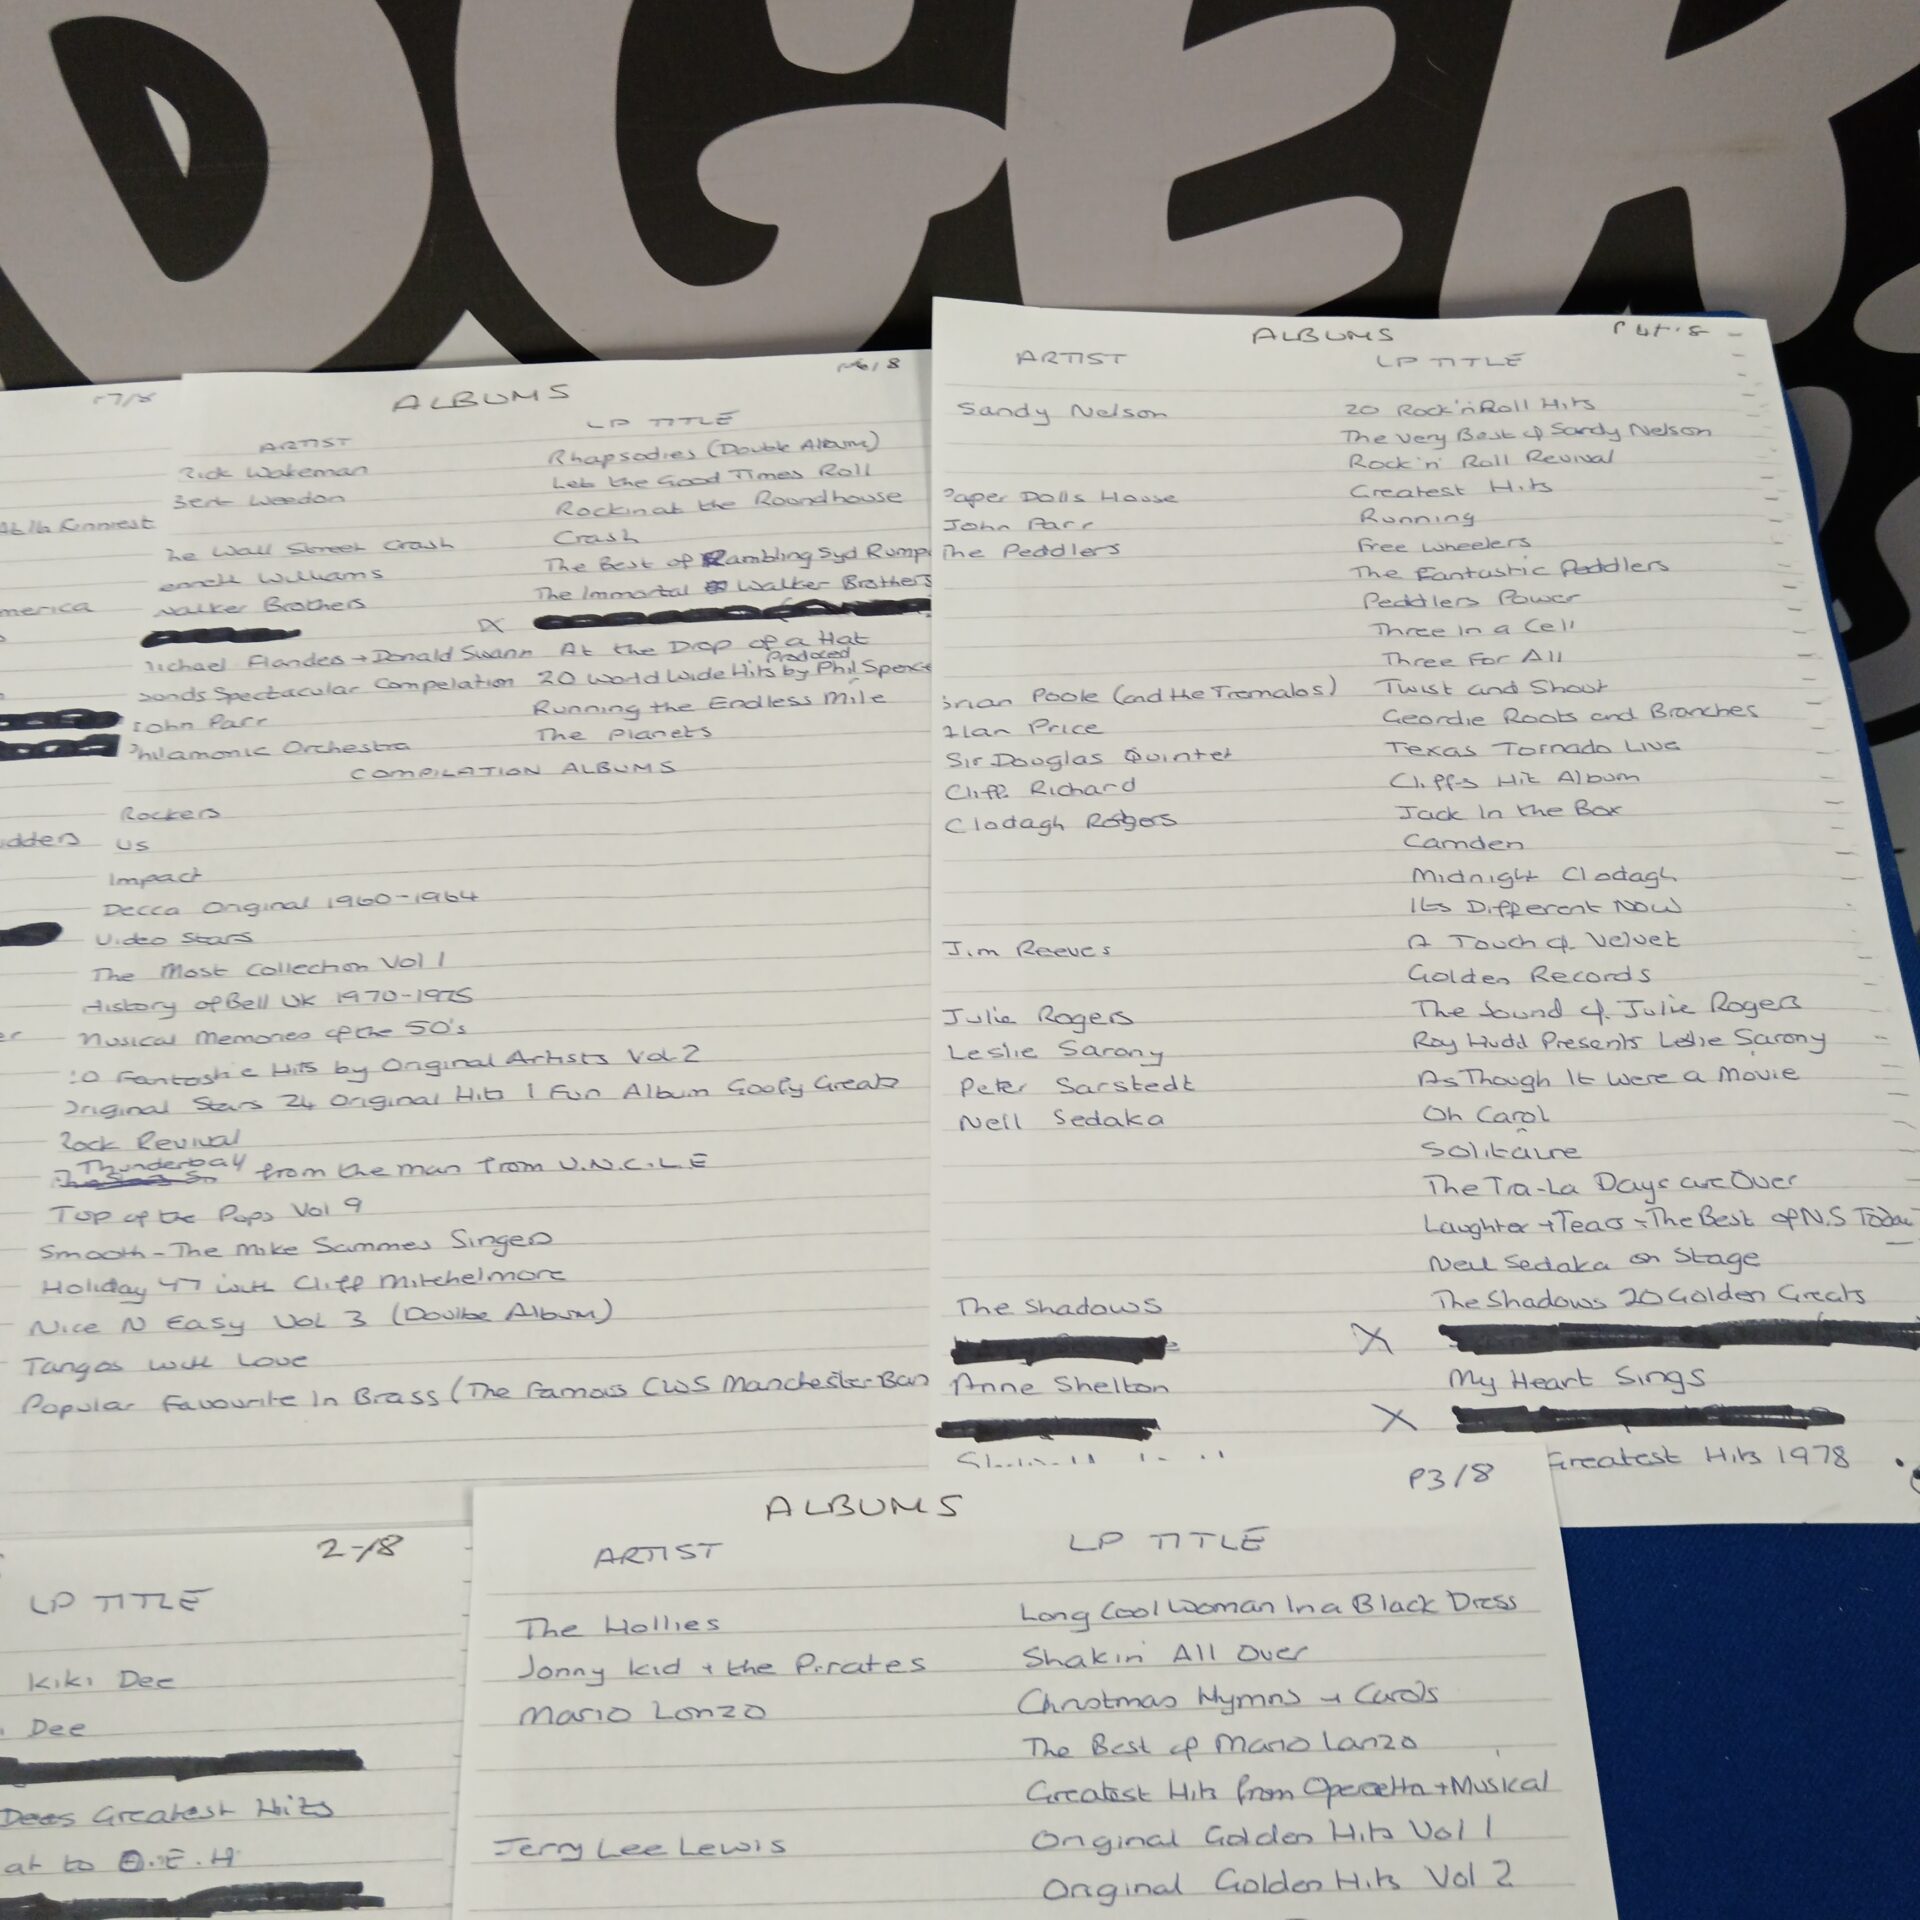 DGER
7/8
Ab
merica
dders
er
ALBUMS
P6/8
ARTIST LP TITLE
Rick Wakeman Rhapsodies (Double Album)
Bert Weedon Let the Good Times Roll
Rockin at the Roundhouse
he Wall Street Crash Crash
enneth Williams The Best of Rambling Syd Rumpo
Walker Brothers The Immortal Walker Brothers
X
Michael Flanders + Donald Swann At the Drop of a Hat
Sounds Spectacular Compelation 20 World Wide Hits Produced by Phil Spence
John Parr Running the Endless Mile
Philamonic Orchestra The Planets
COMPILATION ALBUMS
Rockers
US
Impact
Decca Original 1960-1964
Video Stars
The Most Collection Vol 1
History of Bell UK 1970-1975
Musical Memories of the 50's
20 Fantastic Hits by Original Artists Vol 2
Original Stars 24 Original Hits 1 Fun Album Goofy Greats
Rock Revival
Thunderball from the man from U.N.C.L.E
Top of the Pops Vol 9
Smooth - The Mike Sammes Singers
Holiday 47 with Cliff Mitchelmore
Nice N Easy Vol 3 (Doulbe Album)
Tangos with Love
Popular Favourite In Brass (The Famous CWS Manchester Ban
ALBUMS
ARTIST LP TITLE
Sandy Nelson 20 Rock'n'Roll Hits
The Very Best of Sandy Nelson
Rock'n' Roll Revival
Paper Dolls House Greatest Hits
John Parr Running
The Peddlers Free Wheelers
The Fantastic Peddlers
Peddlers Power
Three In a Cell
Three For All
Brian Poole (and the Tremalos) Twist and Shout
Alan Price Geordie Roots and Branches
Sir Douglas Quintet Texas Tornado Live
Cliff Richard Cliffs Hit Album
Clodagh Rodgers Jack In the Box
Camden
Midnight Clodagh
Its Different Now
Jim Reeves A Touch of Velvet
Golden Records
Julie Rogers The Sound of Julie Rogers
Leslie Sarony Roy Hudd Presents Leslie Sarony
Peter Sarstedt As Though It Were a Movie
Neil Sedaka Oh Carol
Solitaire
The Tra-La Days are Over
Laughter + Tears - The Best of N.S Today
Neil Sedaka on Stage
The Shadows The Shadows 20 Golden Greats
X
Anne Shelton My Heart Sings
X
Greatest Hits 1978
2-/8
LP TITLE
Kiki Dee
Dee
Dees Greatest Hits
at to O.E.H
ALBUMS P3/8
ARTIST LP TITLE
The Hollies Long Cool Woman In a Black Dress
Jonny Kid + the Pirates Shakin' All Over
Mario Lonzo Christmas Hymns + Carols
The Best of Mario Lanzo
Greatest Hits from Operetta + Musical
Jerry Lee Lewis Original Golden Hits Vol 1
Original Golden Hits Vol 2